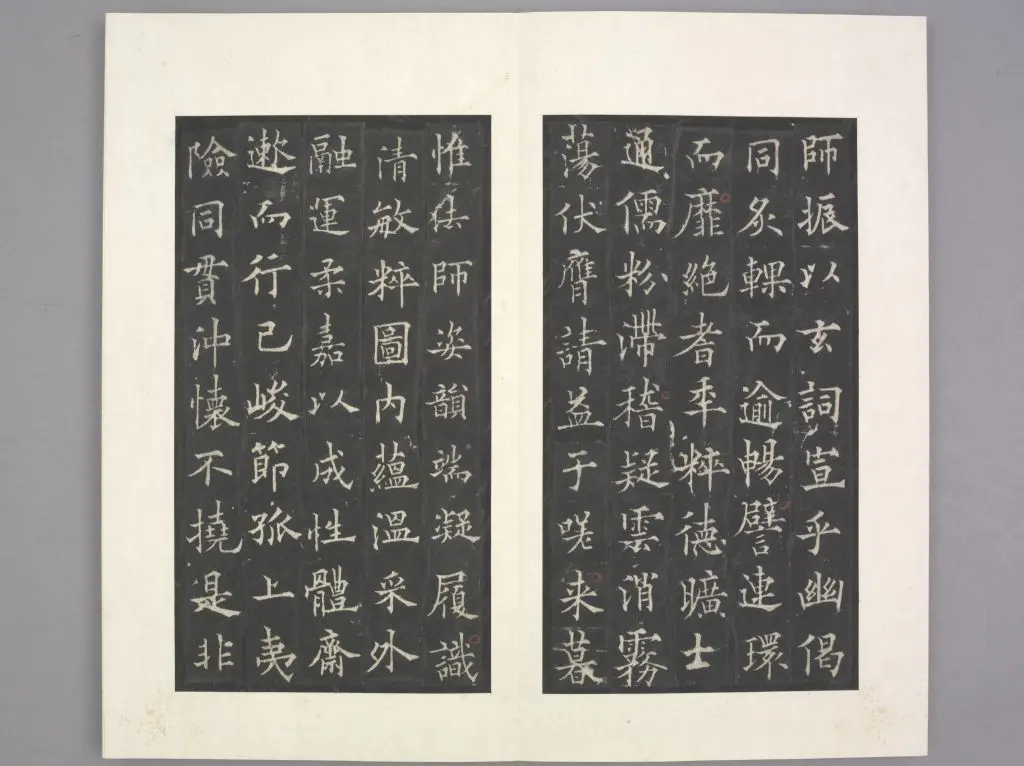 師振以玄詞宣乎幽偈
同炙輠而逾暢譬連環
而靡絕耆秊粹德曠士
通儒粉滯稽疑雲消霧
蕩伏膺請益于嗟来暮
惟師姿韻端凝履識
清敏粹圖内蘊溫采外
融運柔嘉以成性體齋
遬而行己峻節孤上夷
險同貫沖懷不撓是非